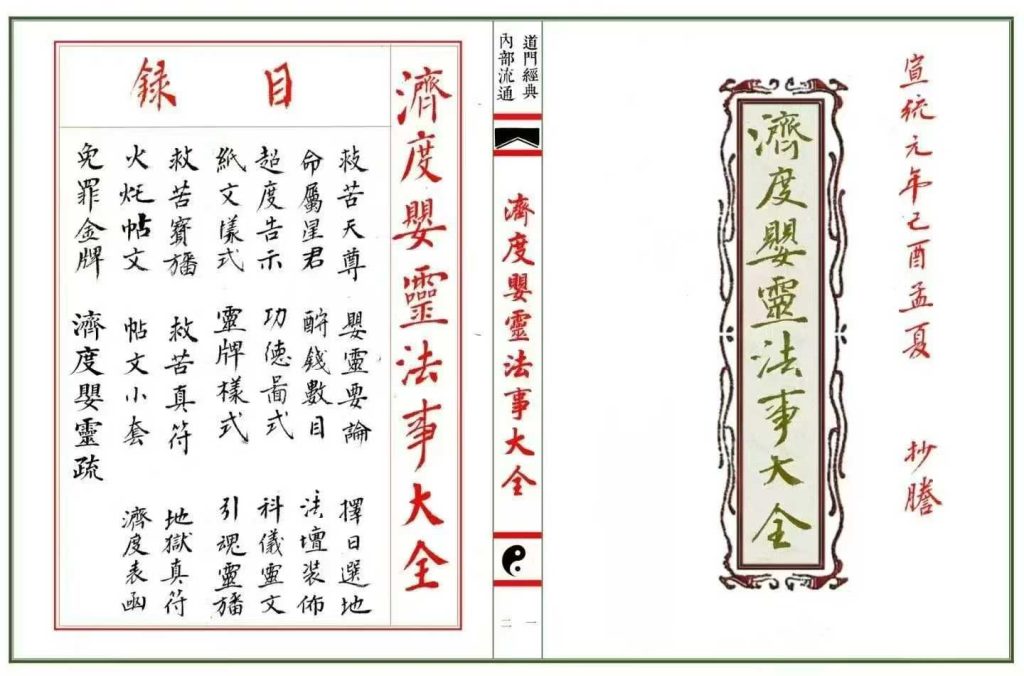 宣統元年己酉孟夏 抄謄
濟度嬰靈法事大全
道門經典
內部流通
濟度嬰靈法事大全
一
二
濟度嬰靈法事大全
目錄
救苦天尊 嬰靈要論 擇日選地
命屬星君 酧錢數目 法壇装佈
超度告示 功德啚式 科儀靈文
紙文樣式 靈牌樣式 引魂靈旛
救苦寳旛 救苦真符 地獄真符
火 帖文 帖文小套 濟度表函
免罪金牌 濟度嬰靈疏